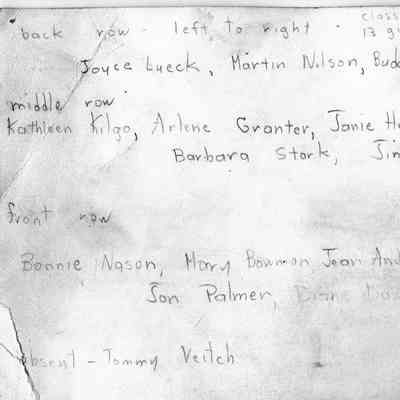 back row - left to right . class
13 g
Joyce Lueck, Martin Nilson, Budd
middle row
Kathleen Kilgo, Arlene Granter, Janie Ha
Barbara Stork, Jim
front row
Bonnie Nason, Mary Bowman Jean And
Jon Palmer, Diane
absent - Tommy Veitch